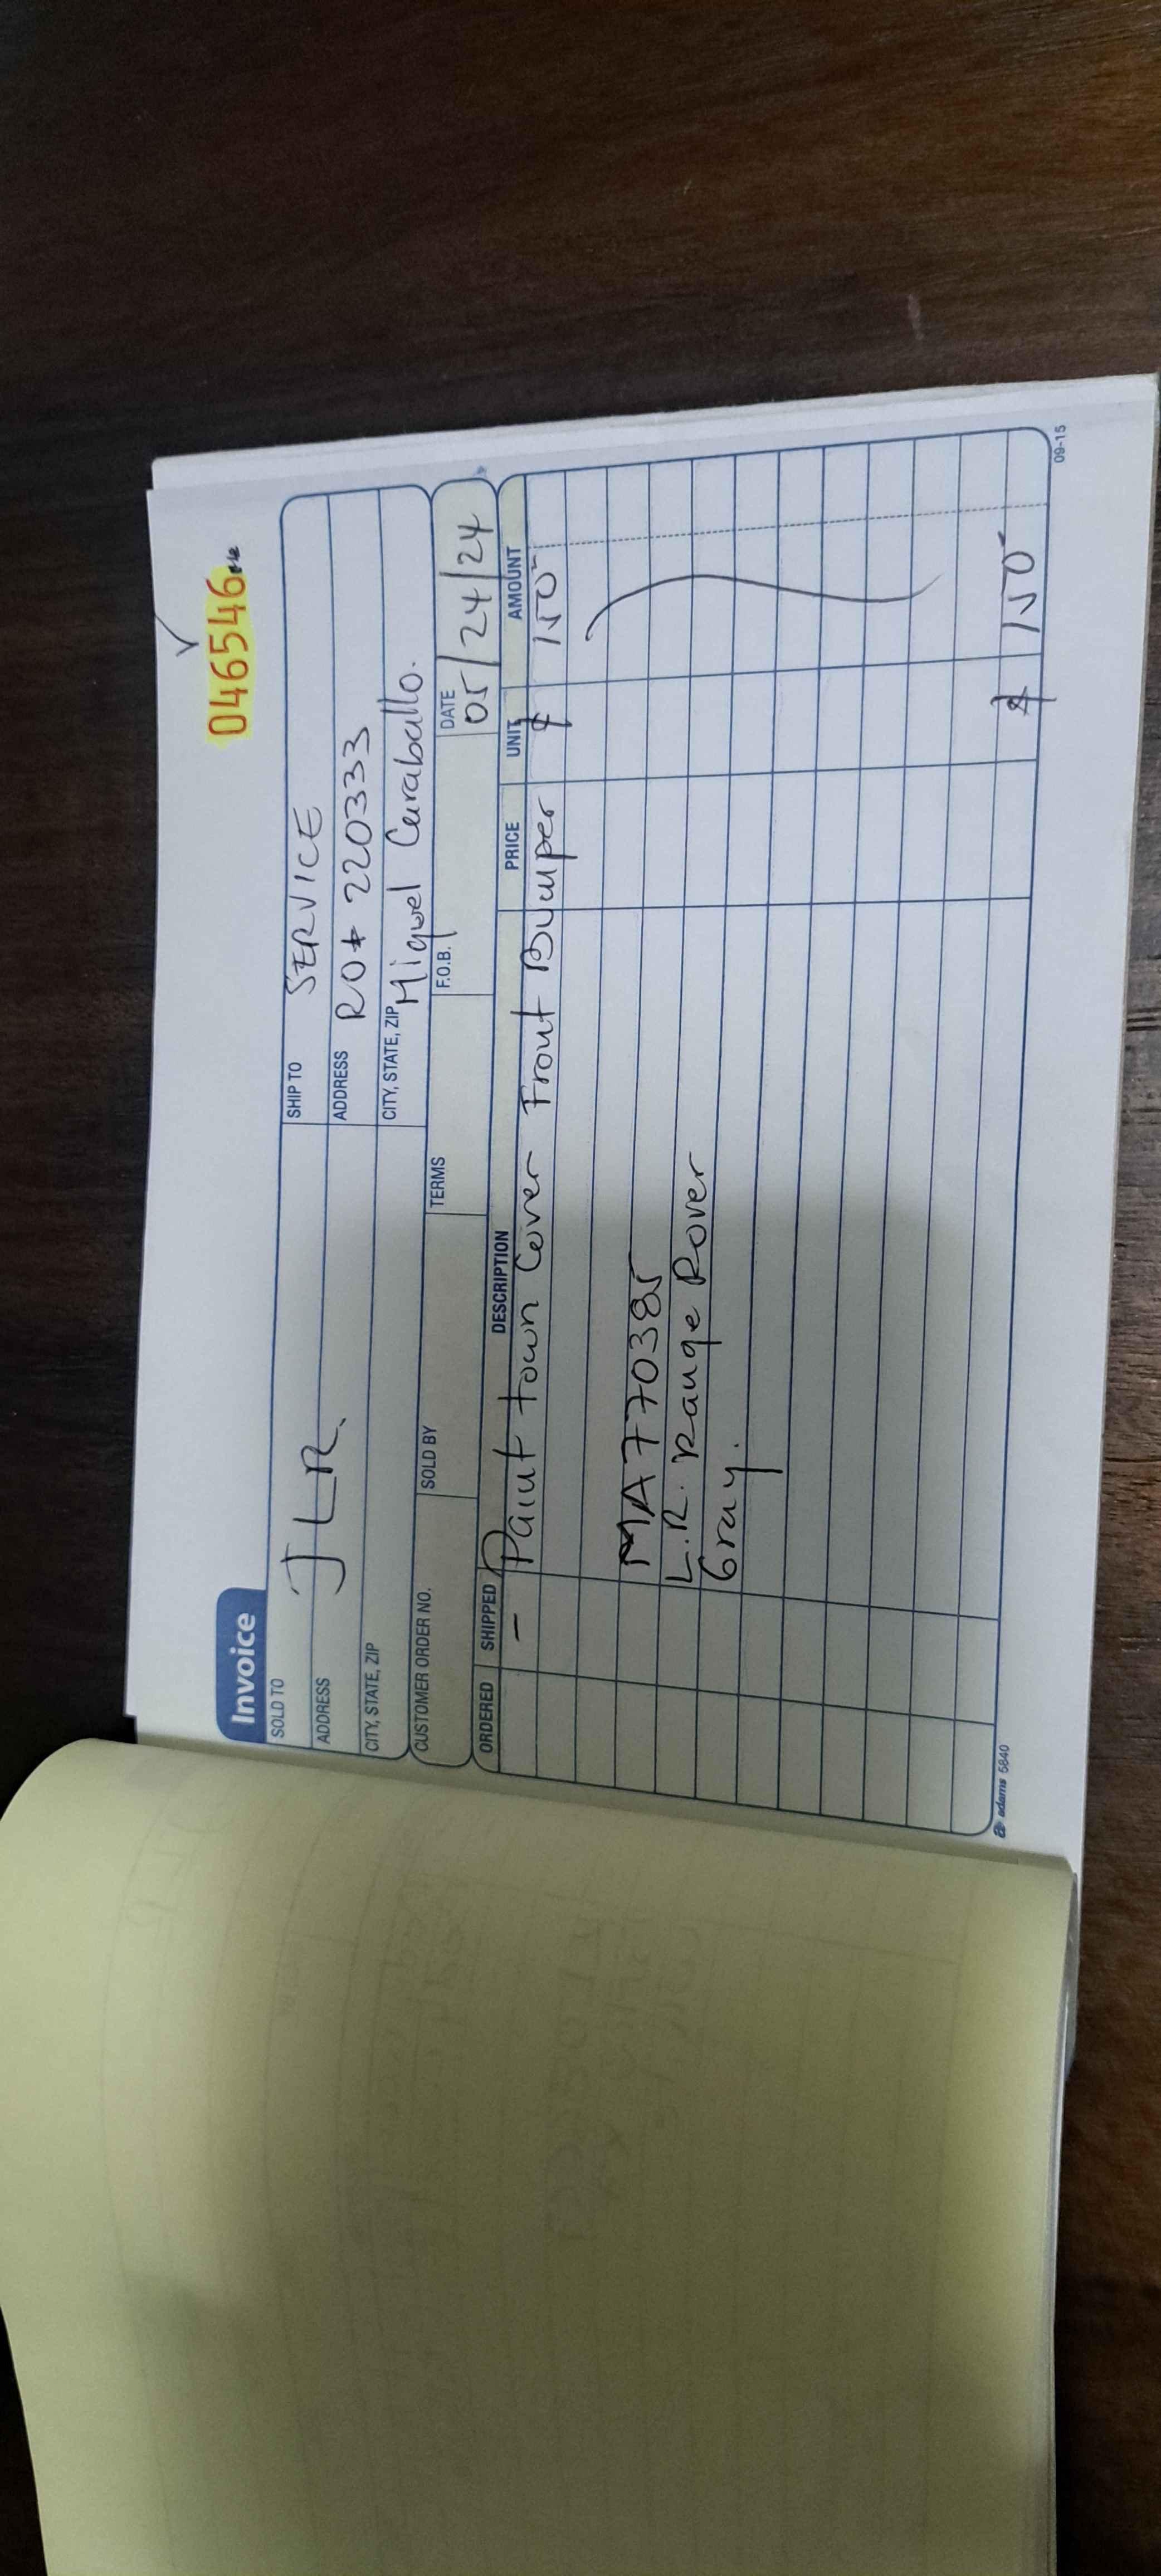 046546
Invoice
SOLD TO JLR.
SHIP TO SERVICE
ADDRESS
ADDRESS RO# 220333
CITY, STATE, ZIP
CITY, STATE, ZIP Miguel Caraballo.
CUSTOMER ORDER NO. SOLD BY TERMS F.O.B. DATE 05/24/24
ORDERED SHIPPED DESCRIPTION PRICE UNIT AMOUNT
- Paint town Cover Front Bumper $ 150-
MA770385
L.R. Range Rover
Gray.
$ 150-
adams 5840 09-15